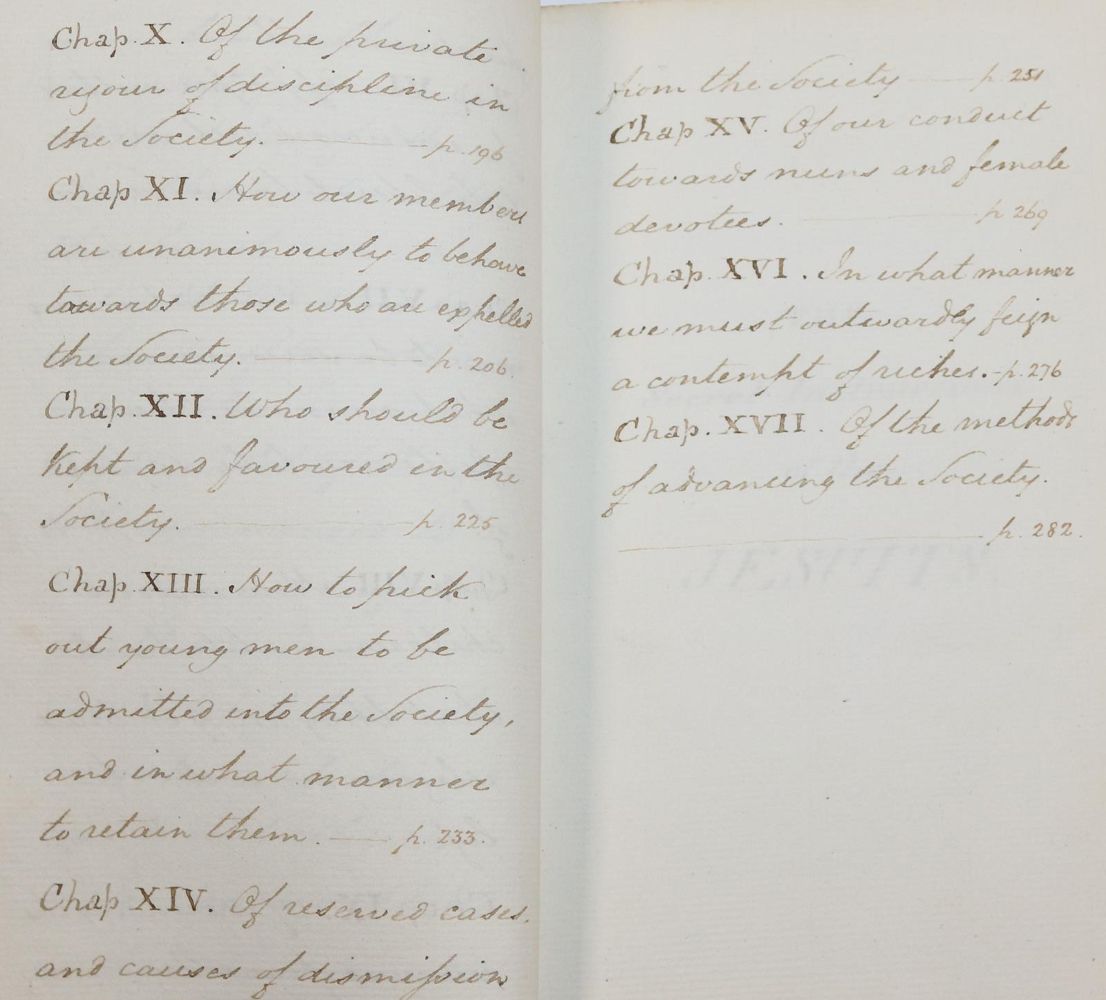 Chap. X. Of the private
rigour of discipline in
the Society. p. 196
Chap XI. How our members
are unanimously to behave
towards those who are expelled
the Society. p. 206.
Chap. XII. Who should be
kept and favoured in the
Society. p. 225
Chap. XIII. How to pick
out young men to be
admitted into the Society,
and in what manner
to retain them. p. 233.
Chap XIV. Of reserved cases.
and causes of dismission
from the Society p. 251
Chap XV. Of our conduct
towards nuns and female
devotees. p 269
Chap. XVI. In what manner
we must outwardly feign
a contempt of riches. - p. 276
Chap. XVII. Of the methods
of advancing the Society.
p. 282.